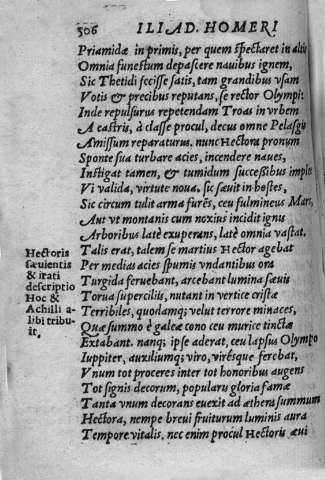 506 ILIAD. HOMERI
Priamidæ in primis, per quem spectaret in altis
Omnia funestum depascere nauibus ignem,
Sic Thetidi fecisse satis, tam grandibus vsam
Votis & precibus reputans, se rector Olympi:
Inde repulsurus repetendam Troas in vrbem
A castris, à classe procul, decus omne Pelasgûm
Amissum reparaturus. nunc Hectora pronum
Sponte sua turbare acies, incendere naues,
Instigat tamen, & tumidum successibus implet
Vi valida, virtute noua. sic sæuit in hostes,
Sic circum tulit arma furēs, ceu fulmineus Mars,
Aut vt montanis cum noxius incidit ignis
Arboribus latè exuperans, latè omnia vastat.
Talis erat, talem se martius Hector agebat
Per medias acies spumis vndantibus ora
Turgida feruebant, arcebant lumina sæuis
Torua supercilijs, nutant in vertice cristæ
Terribiles, quodamq; velut terrore minaces,
Quæ summo è galeæ cono ceu murice tinctæ
Extabant. nanq; ipse aderat, ceu lapsus Olympo
Iuppiter, auxiliumq; viro, virésque ferebat,
Vnum tot proceres inter tot honoribus augens
Tot signis decorum, popularu gloria famæ
Tanta vnum decorans euexit ad æthera summum
Hectora, nempe breui fruiturum luminis aura
Tempore vitalis, nec enim procul Hectoris æui
Hectoris
sæuientis
& irati
descriptio
Hoc &
Achilli a-
libi tribu-
it.